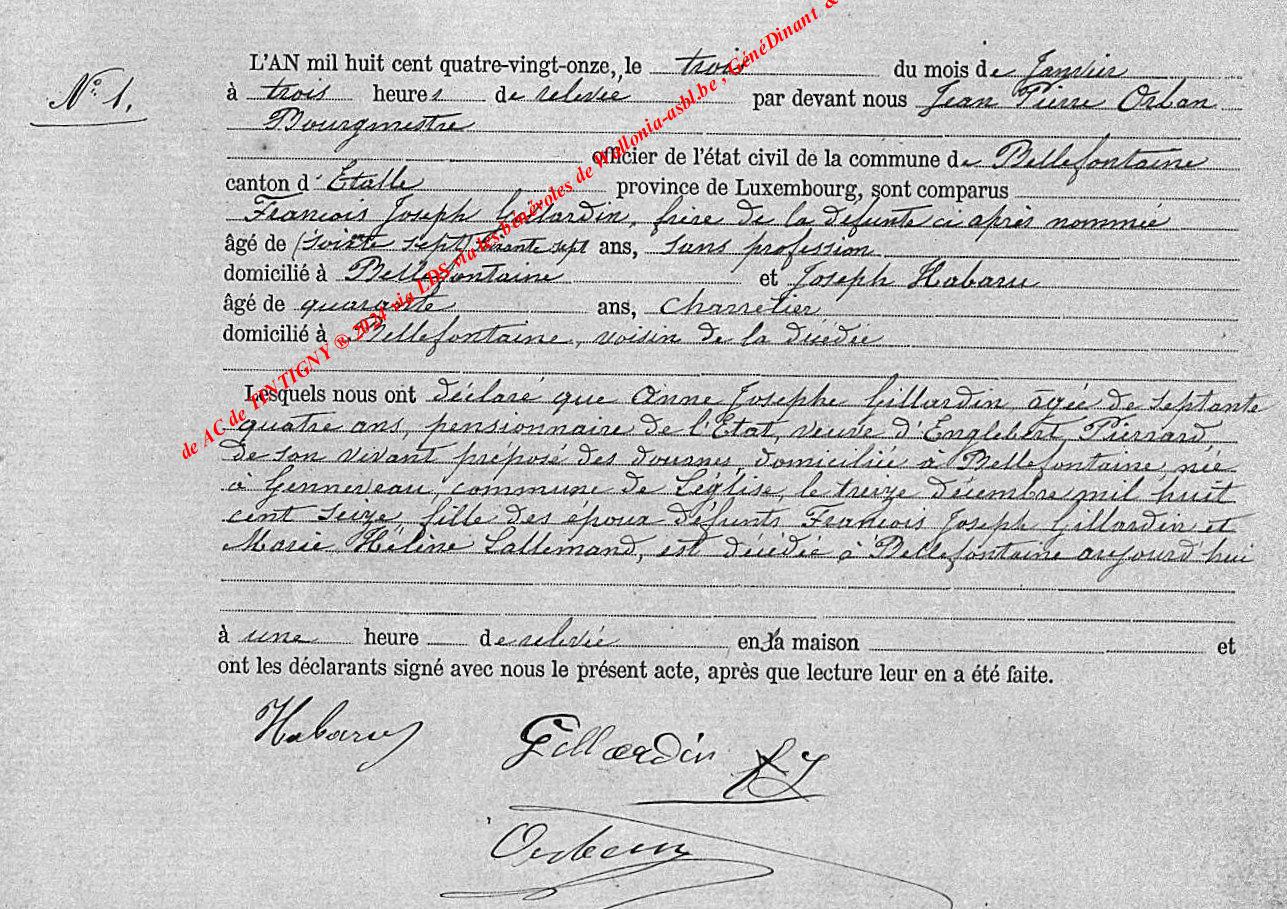 N° 1.
L'AN mil huit cent quatre-vingt-onze, le trois du mois de Janvier
à trois heures de relevée par devant nous Jean Pierre Orban
Bourgmestre
officier de l'état civil de la commune de Bellefontaine
canton d'Etalle province de Luxembourg, sont comparus
François Joseph Gillardin, frère de la défunte ci après nommée
âgé de sept ans, sans profession
domicilié à Bellefontaine et Joseph Habaru
âgé de quarante ans, charretier
domicilié à Bellefontaine, voisin de la décédée
Lesquels nous ont déclaré que Anne Josephe Gillardin, agée de septante
quatre ans, pensionnaire de l'Etat, veuve d'Englebert Pierrard,
de son vivant préposé des douanes, domiciliée à Bellefontaine, née
à Gennevaux, commune de Léglise, le treize décembre mil huit
cent seize, fille des époux défunts François Joseph Gillardin et
Marie Hélène Lallemand, est décédée à Bellefontaine aujourd'hui
à une heure de relevée en la maison et
ont les déclarants signé avec nous le présent acte, après que lecture leur en a été faite.
Habaru
Gillardin
Orban
de AC de TINTIGNY ® 2024 via LDS via les bénévoles de Wallonia-asbl.be , GénéDinant &